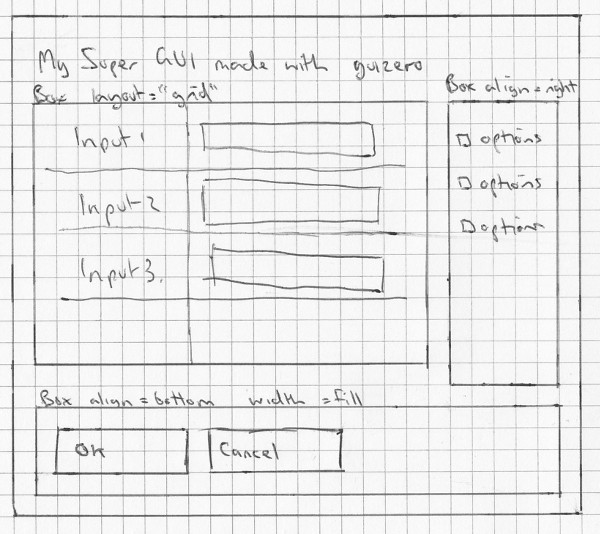 My Super GUI made with guizero
Box layout="grid"
Box align=right
Input 1
Input 2
Input 3.
options
options
options
Box align=bottom width=fill
OK
Cancel